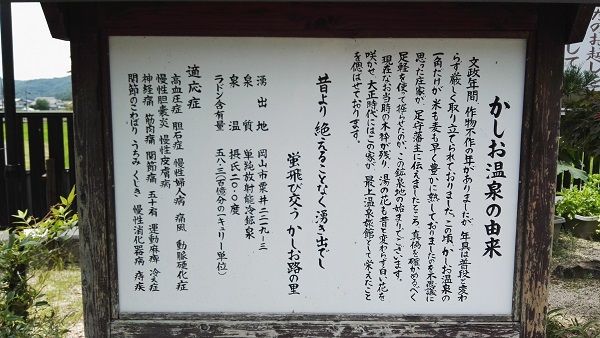 かしお温泉の由来
文政年間、作物不作の年がありましたが、年貢は普段と変わ
らず厳しく取り立てられておりました。この頃、かしお温泉の
一角だけが米も麦も早く豊かに熟しておりましたのを不思議に
思った庄家が、足守藩主に伝えましたところ、真偽を確かめるべく
足軽を使って掘らせたのが、この鉱泉地の始まりでございます。
現在なお当時の木枠が残り、湯の花も昔と変わらず白い花を
咲かせ、大正時代にはこの家が、最上温泉旅館として栄えたこと
を偲ばせております。
昔より 絶えることなく 湧き出でし
蛍飛び交う かしお路の里
湧出地 岡山市粟井二二一九-三
泉質 単純放射能冷鉱泉
泉温 摂氏二〇・〇度
ラドン含有量 五八・三(百億分の一キュリー単位)
適応症
高血圧症 胆石症 慢性婦人病 痛風 動脈硬化症
慢性胆嚢炎 慢性皮膚病
神経痛 筋肉痛 関節痛 五十肩 運動麻痺 冷え症
関節のこわばり うちみ くじき 慢性消化器病 痔疾